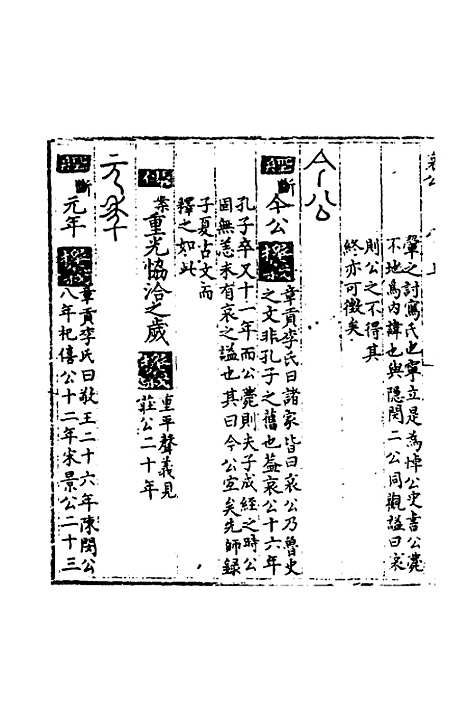 鞏之討寫氏也寧立是為悼公史書公薨
不地為內諱也與隱閔二公同觀謚曰哀
則公之不得其
終亦可徵矣
經 斷 今公 章貢李氏曰諸家皆曰哀公乃魯史
之文非孔子之舊也蓋哀公十六年
孔子卒又十一年而公薨則夫子成經之時公
固無恙未有哀之謚也其曰今公宜矣先師録
子夏占文而
釋之如此
傳 業 重光協洽之歲 重平聲義見
莊公二十年
經 斷 元年 章貢李氏曰敬王二十六年陳閔公
八年杞僖公十二年宋景公二十三